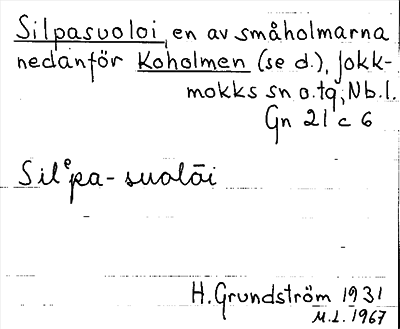 Silpasuoloi, en av småholmarna
nedanför Koholmen (se d.), Jokk-
mokks sn o. tg, Nb.l.
Gn 21 c 6
Silᵉpa-suolāi
H. Grundström 1931
M.L. 1967